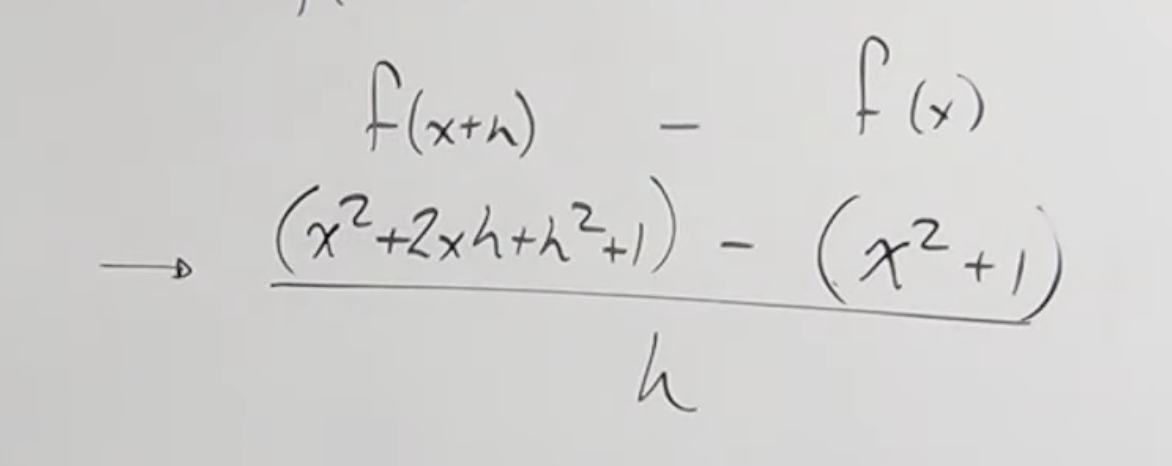 f(x+h) - f(x)
→ (x²+2xh+h²+1) - (x²+1)
h